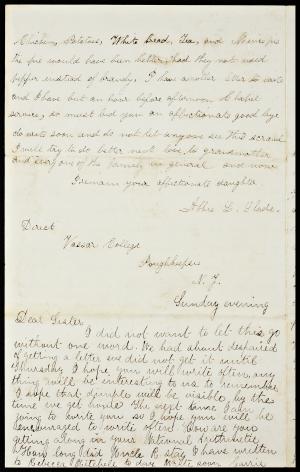 Chicken, Potatoes, White bread, Tea, and Mince pie
the pie would have been better had they not used
pepper instead of brandy. I have another letter to write
and I have but an hour before afternoon Chapel
service, so must bid you an affectionate good bye
do write soon and do not let anyone see this scrawl
I will try to do better next love to grandmother
and every one of the family in general and now
I remain your affectionate daughter
Abbie L.
Direct
Vassar College
Poughkeepsie
N. Y.
Sunday evening
Dear Sister,
I did not want to let this go
without one word. We had about despaired
of getting a letter we did not get it until
Thursday I hope you will write often, any
thing will be interesting to us to remember
I hope that will be visible, by the
time we get home The next time I am
going to write you so I hope you will be
encouraged to write often. How are you
getting along in your National Arithmetic
How long did Uncle R stay I have written
to Rebecca Mitchell to day